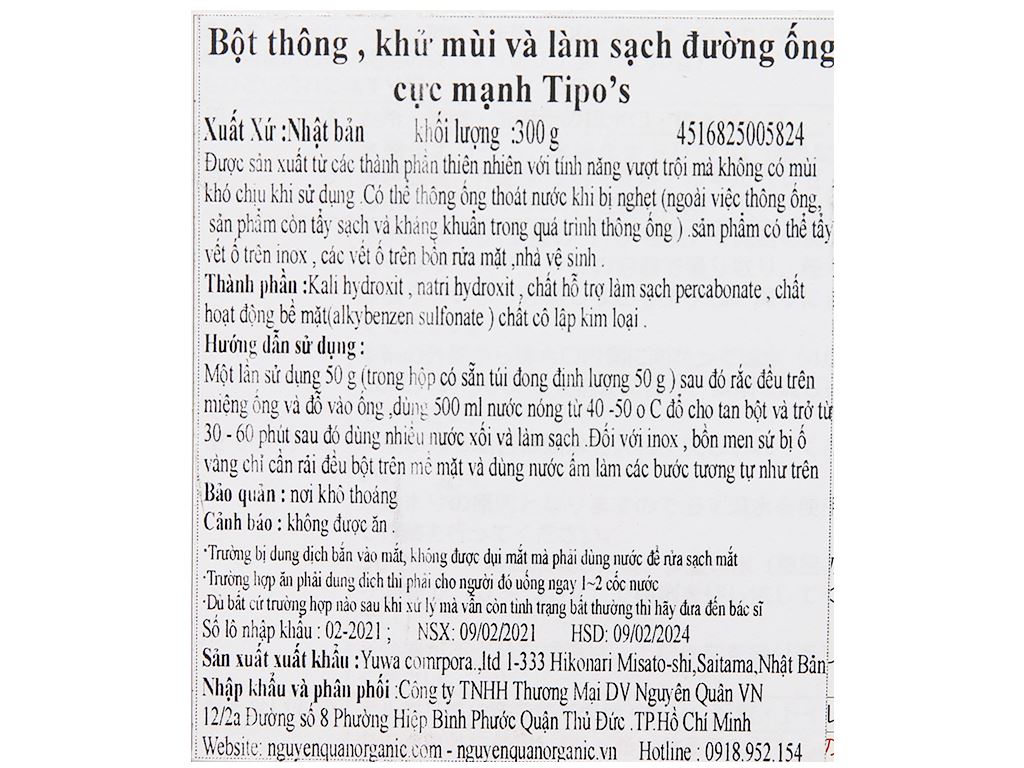 Bột thông , khử mùi và làm sạch đường ống
cực mạnh Tipo's
Xuất Xứ :Nhật bản khối lượng :300 g 4516825005824
Được sản xuất từ các thành phần thiên nhiên với tính năng vượt trội mà không có mùi
khó chịu khi sử dụng .Có thể thông ống thoát nước khi bị nghẹt (ngoài việc thông ống,
sản phẩm còn tẩy sạch và kháng khuẩn trong quá trình thông ống ) .sản phẩm có thể tẩy
vết ố trên inox , các vết ố trên bồn rửa mặt ,nhà vệ sinh .
Thành phần :Kali hydroxit , natri hydroxit , chất hỗ trợ làm sạch percabonate , chất
hoạt động bề mặt(alkybenzen sulfonate ) chất cô lập kim loại .
Hướng dẫn sử dụng :
Một lần sử dụng 50 g (trong hộp có sẵn túi đong định lượng 50 g ) sau đó rắc đều trên
miệng ống và đổ vào ống ,dùng 500 ml nước nóng từ 40 -50 o C đổ cho tan bột và trở từ
30 - 60 phút sau đó dùng nhiều nước xối và làm sạch .Đối với inox , bồn men sứ bị ố
vàng chỉ cần rải đều bột trên mề mặt và dùng nước ấm làm các bước tương tự như trên
Bảo quản : nơi khô thoáng
Cảnh báo : không được ăn .
·Trường bị dung dịch bắn vào mắt, không được dụi mắt mà phải dùng nước để rửa sạch mắt
·Trường hợp ăn phải dung dich thì phải cho người đó uống ngay 1~2 cốc nước
·Dù bất cứ trường hợp nào sau khi xử lý mà vẫn còn tình trạng bất thường thì hãy đưa đến bác sĩ
Số lô nhập khẩu : 02-2021 ; NSX: 09/02/2021 HSD: 09/02/2024
Sản xuất xuất khẩu :Yuwa comrpora.,ltd 1-333 Hikonari Misato-shi,Saitama,Nhật Bản
Nhập khẩu và phân phối :Công ty TNHH Thương Mại DV Nguyên Quân VN
12/2a Đường số 8 Phường Hiệp Bình Phước Quận Thủ Đức .TP.Hồ Chí Minh
Website: nguyenquanorganic.com - nguyenquanorganic.vn Hotline : 0918.952.154